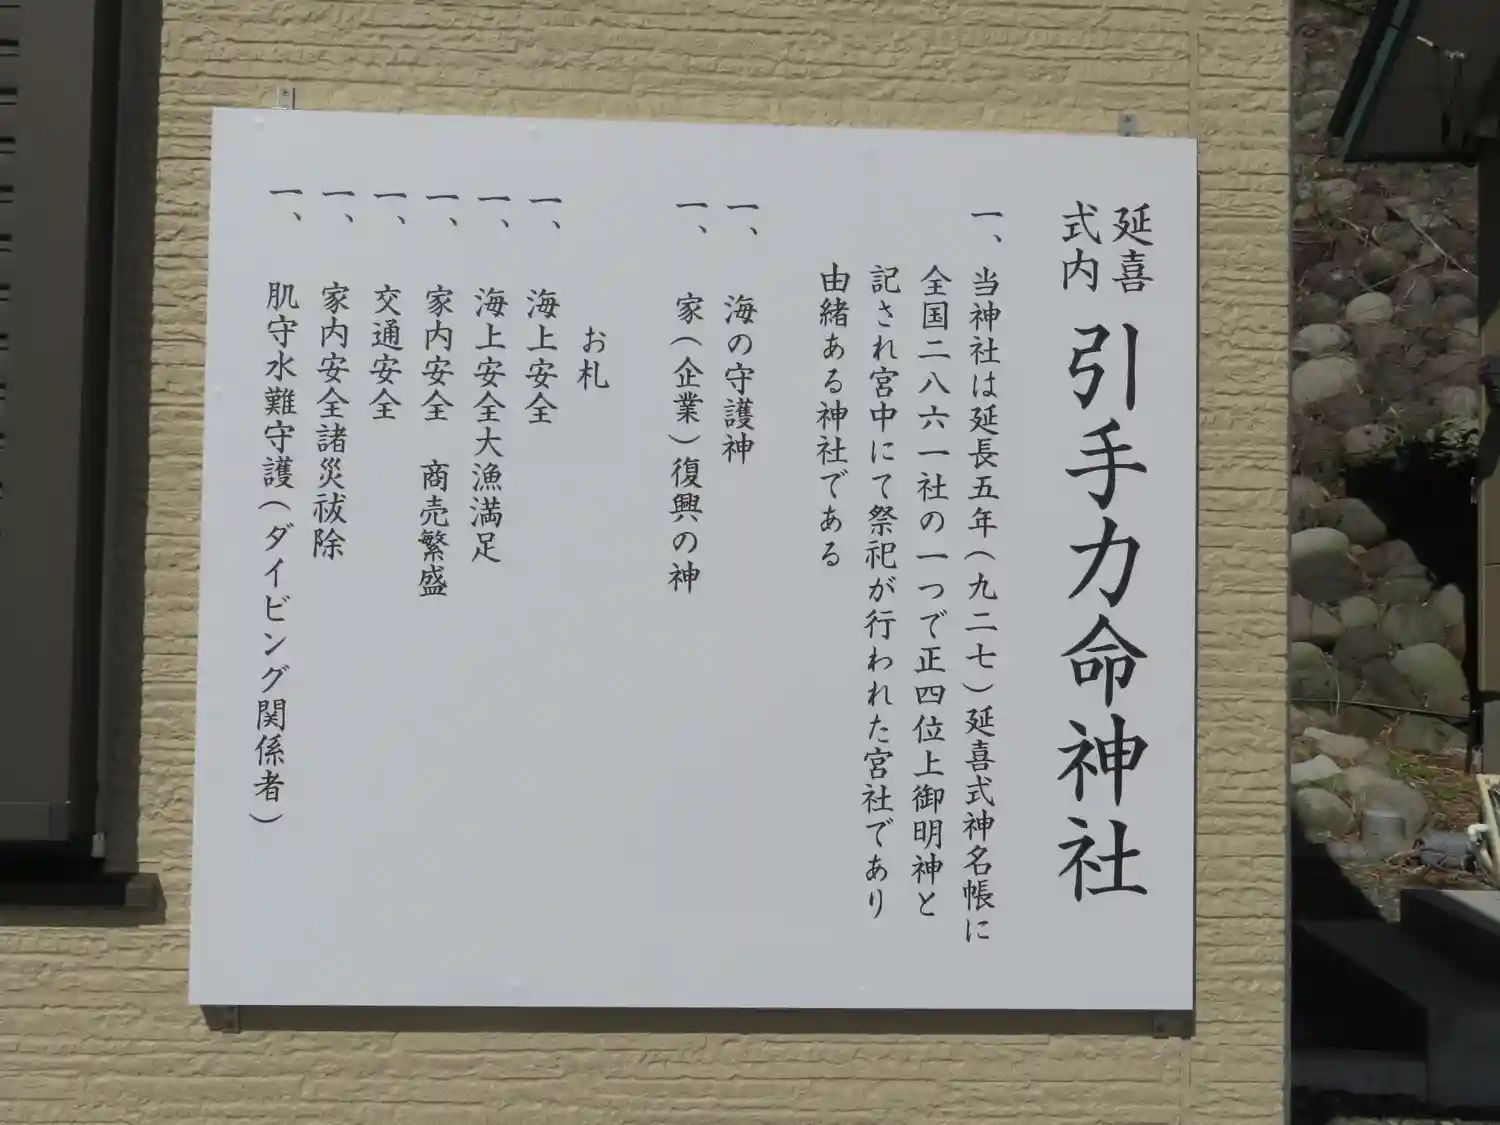 延喜式内 引手力命神社
一、当神社は延長五年（九二七）延喜式神名帳に
全国二八六一社の一つで正四位上御明神と
記され宮中にて祭祀が行われた宮社であり
由緒ある神社である
一、海の守護神
一、家（企業）復興の神
お札
一、海上安全
一、海上安全大漁満足
一、家内安全　商売繁盛
一、交通安全
一、家内安全諸災祓除
一、肌守水難守護（ダイビング関係者）